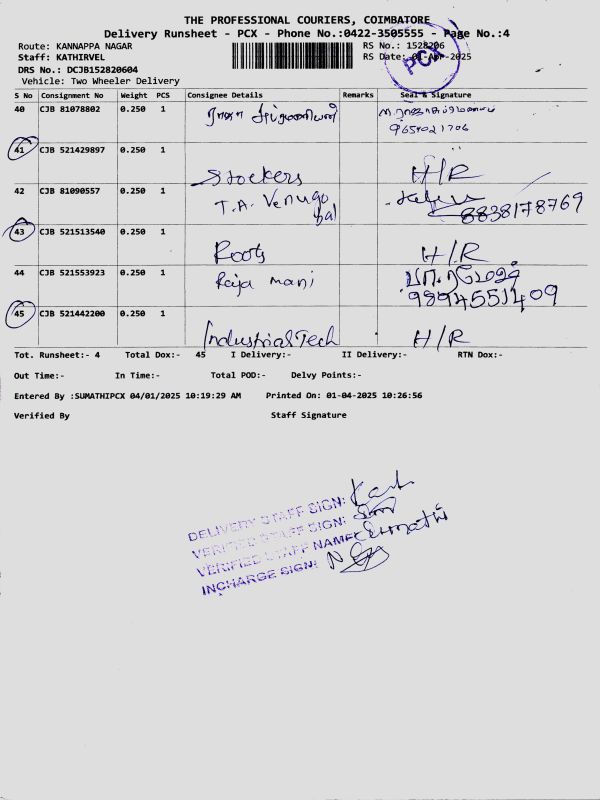 THE PROFESSIONAL COURIERS, COIMBATORE
Delivery Runsheet - PCX - Phone No.:0422-3505555 - Page No.:4
Route: KANNAPPA NAGAR RS No.: 1528206
Staff: KATHIRVEL RS Date: 01-Apr-2025
DRS No.: DCJB152820604
Vehicle: Two Wheeler Delivery
PCX
S No Consignment No Weight PCS Consignee Details Remarks Seal & Signature
40 CJB 81078802 0.250 1
9654021706
41 CJB 521429897 0.250 1 Stockers H/R
42 CJB 81090557 0.250 1 T.A. Venugo
pal 8838178769
43 CJB 521513540 0.250 1 Roots H/R
44 CJB 521553923 0.250 1 Raja mani
9894551409
45 CJB 521442200 0.250 1 IndustrialTech H/R
Tot. Runsheet:- 4 Total Dox:- 45 I Delivery:- II Delivery:- RTN Dox:-
Out Time:- In Time:- Total POD:- Delvy Points:-
Entered By :SUMATHIPCX 04/01/2025 10:19:29 AM Printed On: 01-04-2025 10:26:56
Verified By Staff Signature
DELIVERY STAFF SIGN:
VERIFIED STAFF SIGN:
VERIFIED STAFF NAME: Sumathi
INCHARGE SIGN: